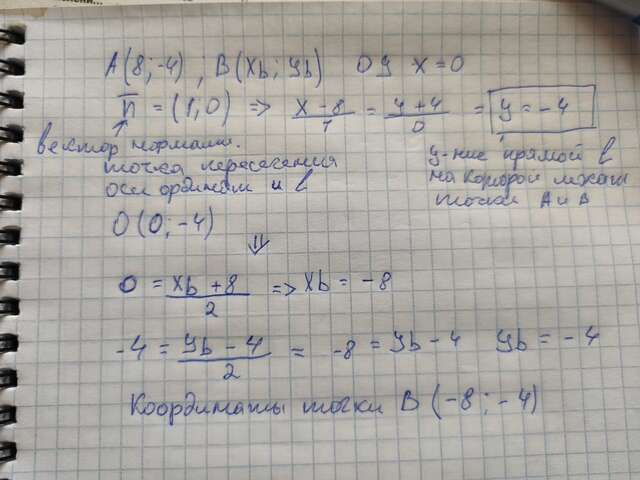 A(8;-4) ; B(Xb; Yb) ОУ X=0
n̄ = (1,0) => (X-8)/1 = (y+4)/0 = y=-4
вектор нормали.
точка пересечения
оси ординат и l
у-ние прямой l
на которой лежат
точки A и B
O(0;-4)
⇓
0 = (Xb+8)/2 => Xb = -8
-4 = (Yb-4)/2 = -8 = Yb-4 Yb = -4
Координаты точки B(-8;-4)